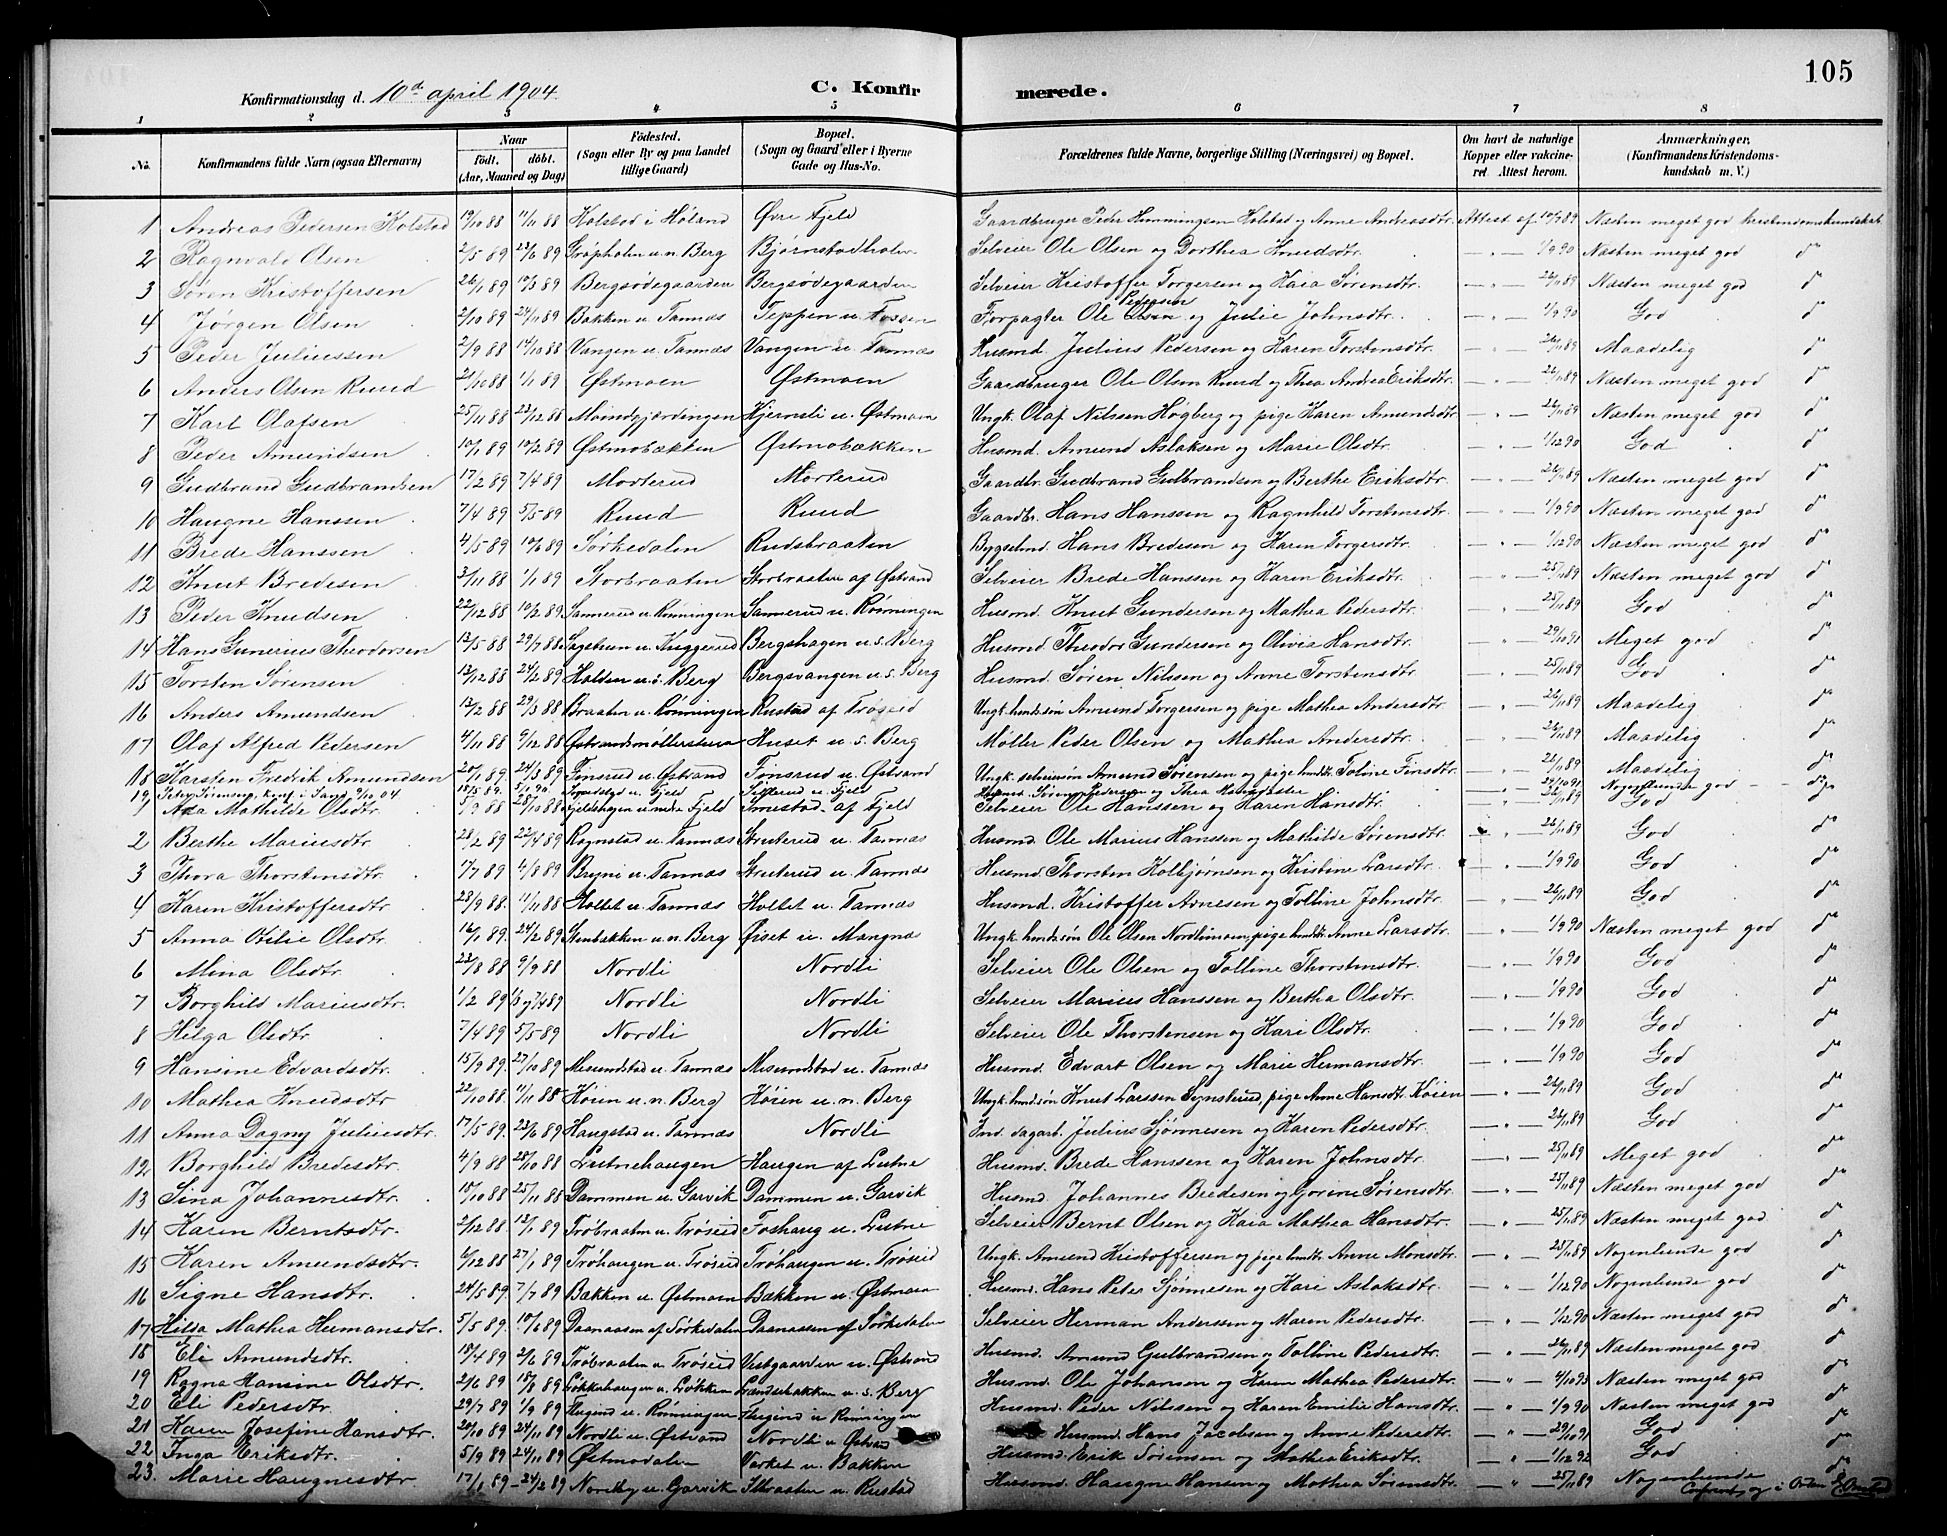 105
Konfirmationsdag d. 10de april 1904. C. Konfirmerede.
1 2 3 4 5 6 7 8
No. Konfirmandens fulde Navn (ogsaa Efternavn) Naar født, døbt. (Aar, Maaned og Dag) Fødested. (Sogn eller By og paa Landet tillige Gaard) Bopæl. (Sogn og Gaard eller i Byerne Gade og Hus-No. Forældrenes fulde Navne, borgerlige Stilling (Næringsvei) og Bopæl. Om havt de naturlige Kopper eller vakcineret Attest herom. Anmærkninger, (Konfirmandens Kristendomskundskab m. V.)
1 Andreas Pedersen Kolstad 19/10 88 11/11 88 Kolstad i Høland Øvre Fjeld Gaardbruger Peder Hemmingsen Kolstad og Anne Andreasdtr. Attest af 10/7 89 Næsten meget god kristendomskundskab
2 Ragnvald Olsen 2/5 89 23/6 89 Grøpholen u. n. Berg Bjørnstadholen Selveier Ole Olsen og Dorthea Knudsdtr. — " — 1/9 90 Næsten meget god do
3 Søren Kristoffersen 26/1 89 10/3 89 Bergsødegaarden Bergsødegaarden Selveier Kristoffer Torgersen og Kaia Sørensdtr. — " — 26/11 89 Næsten meget god do
4 Jørgen Olsen 2/10 89 24/11 89 Bakken u. Tannæs Teppen u. Fossen Forpagter Ole Pedersen og Julie Johnsdtr. — " — 1/9 90 God do
5 Peder Juliussen 2/9 88 14/10 88 Vangen u. Tannæs Vangen u. Tannæs Husmd. Julius Pedersen og Karen Torstensdtr. — " — 26/11 89 Maadelig do
6 Anders Olsen Ruud 21/10 88 1/1 89 Østmoen Østmoen Gaardbruger Ole Olsen Ruud og Thea Andrea Eriksdtr. — " — 26/11 89 Næsten meget god do
7 Karl Olafsen 25/11 88 23/12 88 Mangfjærdingen Kjernsli u. Østmoen Ungk. Olaf Nilssen Høgberg og pige Karen Amundsdtr. — " — 26/11 89 Næsten meget god do
8 Peder Amundsen 10/1 89 10/2 89 Østmobækken Østmobækken Husmd. Amund Aslaksen og Marie Olsdtr. — " — 1/12 90 God do
9 Gudbrand Gudbrandsen 17/2 89 7/4 89 Morterud Morterud Gaardbr. Gudbrand Gulbrandsen og Berthe Eriksdtr. — " — 26/11 89 Næsten meget god do
10 Haugne Hanssen 7/4 89 5/5 89 Ruud Ruud Gaardbr. Hans Hanssen og Ragnhild Torstensdtr. — " — 1/9 90 Næsten meget god do
11 Brede Hanssen 4/5 89 10/6 89 Sørkedalen Rudsbraaten Bygselmd. Hans Bredesen og Karen Torgersdtr. — " — 1/12 90 Næsten meget god do
12 Knut Bredesen 3/11 88 1/1 89 Storbraaten Storbraaten af Østrand Selveier Brede Hanssen og Karen Eriksdtr. — " — 25/11 89 Næsten meget god do
13 Peder Knudsen 22/12 88 10/2 89 Sannerud u. Rønningen Sannerud u. Rønningen Husmd. Knut Gundersen og Mathea Pedersdtr. — " — 25/11 89 God do
14 Hans Gunerius Theodorsen 12/5 88 29/7 88 Sagstuen u. Kuggerud Bergshagen u. s. Berg Husmd. Theodor Gundersen og Olivia Hansdtr. — " — 29/10 91 Meget god do
15 Torsten Sørensen 12/12 88 24/2 89 Holden u. s. Berg Bergsvangen u. s. Berg Husmd. Søren Nilssen og Anne Torstensdtr. — " — 25/11 89 God do
16 Anders Amundsen 12/2 88 29/3 88 Braaten u. Rønningen Rustad af Trøseid Ungk. husmdssøn Amund Torgersen og pige Mathea Andersdtr. — " — 26/11 89 Maadelig do
17 Olaf Alfred Pedersen 4/11 88 9/12 88 Østrandsmøllerstuen Huset u. s. Berg Møller Peder Olsen og Mathea Andersdtr. — " — 26/11 89 Maadelig do
18 Karsten Fredrik Amundsen 20/1 89 24/3 89 Fønsrud u. Østrand Fønsrud u. Østrand Ungk. selveiersøn Amund Sørensen og pige husmdt. Toline Finsdtr. — " — 26/11 89 Maadelig do
19 Peter Sørensen, konf. i Sand 9/10 04 Husmd. Søren Pedersen og Thea Nogenlunde god
1 Aka Mathilde Olsdtr. 5/9 88 28/10 88 Fjeldshagen u. nedre Fjeld Smestad af Fjeld Selveier Ole Hanssen og Karen Hansdtr. — " — 26/11 89 God
2 Berthe Mariusdtr. 28/2 89 22/4 89 Rognstad u. Tannæs Struterud u. Tannæs Husmd. Ole Marius Hanssen og Mathilde Sørensdtr. — " — 26/11 89 God do
3 Thora Thorstensdtr. 17/7 89 4/8 89 Bryni u. Tannæs Struterud u. Tannæs Husmd. Thorsten Kolbjørnsen og Kristine Larsdtr. — " — 1/9 90 God do
4 Karen Kristoffersdtr. 23/9 88 11/11 88 Holtet u. Tannæs Holtet u. Tannæs Husmd. Kristoffer Arnesen og Tolline Johnsdtr. — " — 26/11 89 God do
5 Anna Otilie Olsdtr. 16/1 89 24/2 89 Stenbækken u. n. Berg Øiset u. Mangnæs Ungk. husmdssøn Ole Olsen Nordlimoen, pige husmdt. Anne Larsdtr. — " — 1/9 90 Næsten meget god do
6 Mina Olsdtr. 22/8 88 9/9 88 Nordli Nordli Selveier Ole Olsen og Tolline Thorstensdtr. — " — 1/9 90 God do
7 Borghild Mariusdtr. 1/2 89 1/3 og 7/4 89 Nordli Nordli Selveier Marius Hanssen og Bertha Olsdtr. — " — 1/9 90 God do
8 Helga Olsdtr. 7/4 89 5/5 89 Nordli Nordli Selveier Ole Thorstensen og Kari Olsdtr. — " — 1/9 90 God do
9 Hansine Edvardsdtr. 15/9 89 27/10 89 Mesundstad u. Tannæs Mesundstad u. Tannæs Husmd. Edvart Olsen og Marie Hermansdtr. — " — 1/9 90 God do
10 Mathea Knudsdtr 22/10 88 11/11 88 Køien u. n. Berg Køien u. n. Berg Ungk. husmdssøn Knut Larssen Synsterud, pige Anne Hansdt. Køien — " — 26/11 89 God do
11 Anna Dagny Juliusdtr. 17/5 89 23/6 89 Haugstad u. Tannæs Nordli Ind. dagarb. Julius Sjønnesen og Karen Pedersdtr. — " — 26/11 89 God do
12 Borghild Bredesdtr. 4/9 88 28/10 88 Lustnehaugen Haugen af Lustne Husmd. Brede Hanssen og Karen Johnsdtr. — " — 25/11 89 Meget god do
13 Sina Johannesdtr. 15/10 88 25/11 88 Dammen u. Garvik Dammen u. Garvik Husmd. Johannes Bredesen og Gorine Sørensdtr. — " — 25/11 89 Næsten meget god do
14 Karen Berntsdtr. 2/12 88 12/1 89 Trøbraaten u. Trøseid Foshaug u. Lustne Selveier Bernt Olsen og Kaia Mathea Hansdtr. — " — 25/11 89 Næsten meget god do
15 Karen Amundsdtr. 6/12 88 27/1 89 Trøhaugen u. Trøseid Trøhaugen u. Trøseid Ungk. Amund Kristoffersen og pige husmdt. Anne Monsdtr. — " — 25/11 89 Nogenlunde god do
16 Signe Hansdtr. 24/5 89 7/7 89 Bækken u. Østmoen Bækken u. Østmoen Husmd. Hans Peter Sjønnesen og Kari Aslaksdtr. — " — 1/12 90 Nogenlunde god do
17 Hilja Mathea Hermansdtr. 5/5 89 10/6 89 Daanaasen af Sørkedalen Daanaasen af Sørkedalen Selveier Herman Anderssen og Maren Pedersdtr. — " — 1/12 90 Næsten meget god do
18 Eli Amundsdtr. 18/4 89 2/6 89 Trøbraaten u. Trøseid Vestgaarden u. Østrand Husmd. Amund Gulbrandsen og Tolline Pedersdtr. — " — 26/11 89 Næsten meget god do
19 Ragna Hansine Olsdtr. 2/6 89 18/8 89 Løkkehaugen u. Løkken Lændsebakken u. s. Berg Husmd. Ole Johansen og Karen Mathea Pedersdtr. — " — 4/10 93 Næsten meget god do
20 Eli Pedersdtr. 29/7 89 1/9 89 Flugind u. Rønningen Flugind u. Rønningen Husmd. Peder Nilssen og Karen Emilie Hansdtr. — " — 1/9 90 Næsten meget god do
21 Karen Josefine Hansdtr. 20/10 89 24/11 89 Nordli u. Østrand Nordli u. Østrand Husmd. Hans Jacobsen og Anne Pedersdtr. — " — 29/10 91 God do
22 Inga Eriksdtr. 5/9 89 24/11 89 Østmodalen Varket u. Bakken Husmd. Erik Sørensen og Mathea Eriksdtr. — " — 1/12 92 God do
23. Marie Haugnesdtr. 17/1 89 24/2 89 Nordby u. Garvik Ithraaten u. Rustad Husmd. Haugne Hansen og Mathea Sørensdtr. — " — 25/11 89 Nogenlunde do